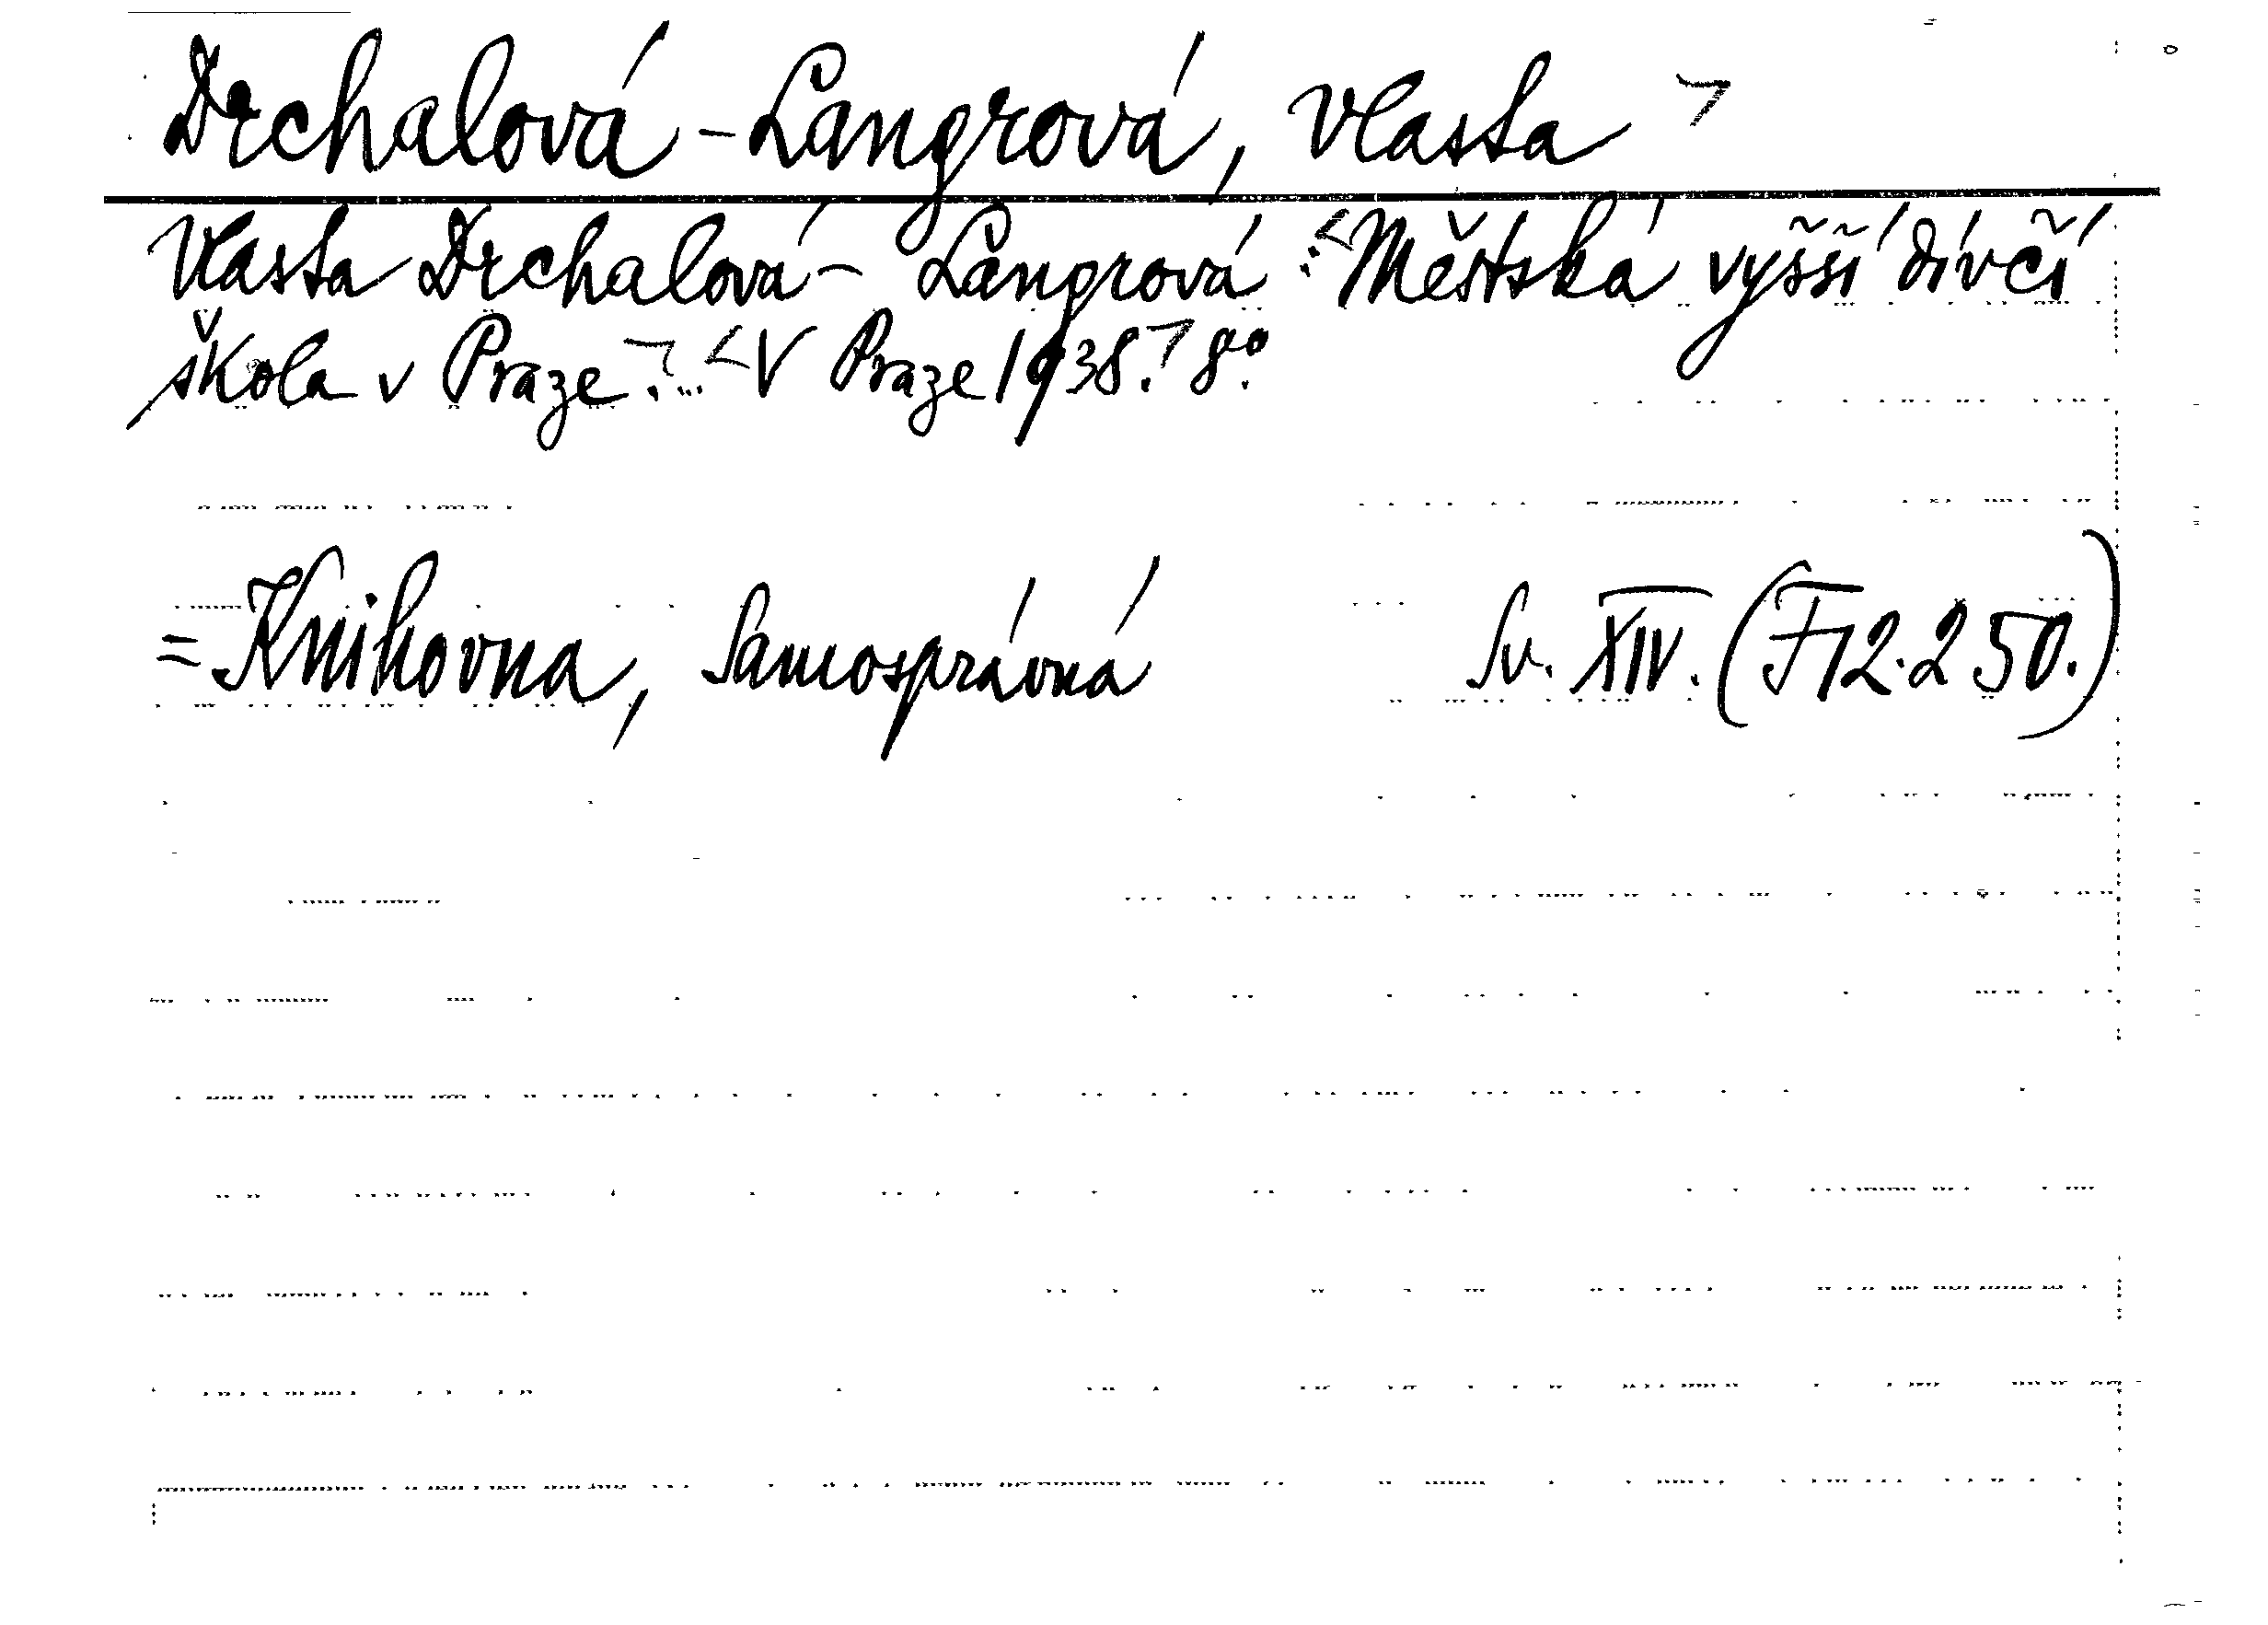 Drchalová-Langrová, Vlasta ¬
Vlasta Drchalová- Langrová :<Městská vyšší dívčí
škola v Praze¬. ... <V Praze 1938.¬ 8°.
=Knihovna, Samosprávná Sv. XIV. (F12.250.)